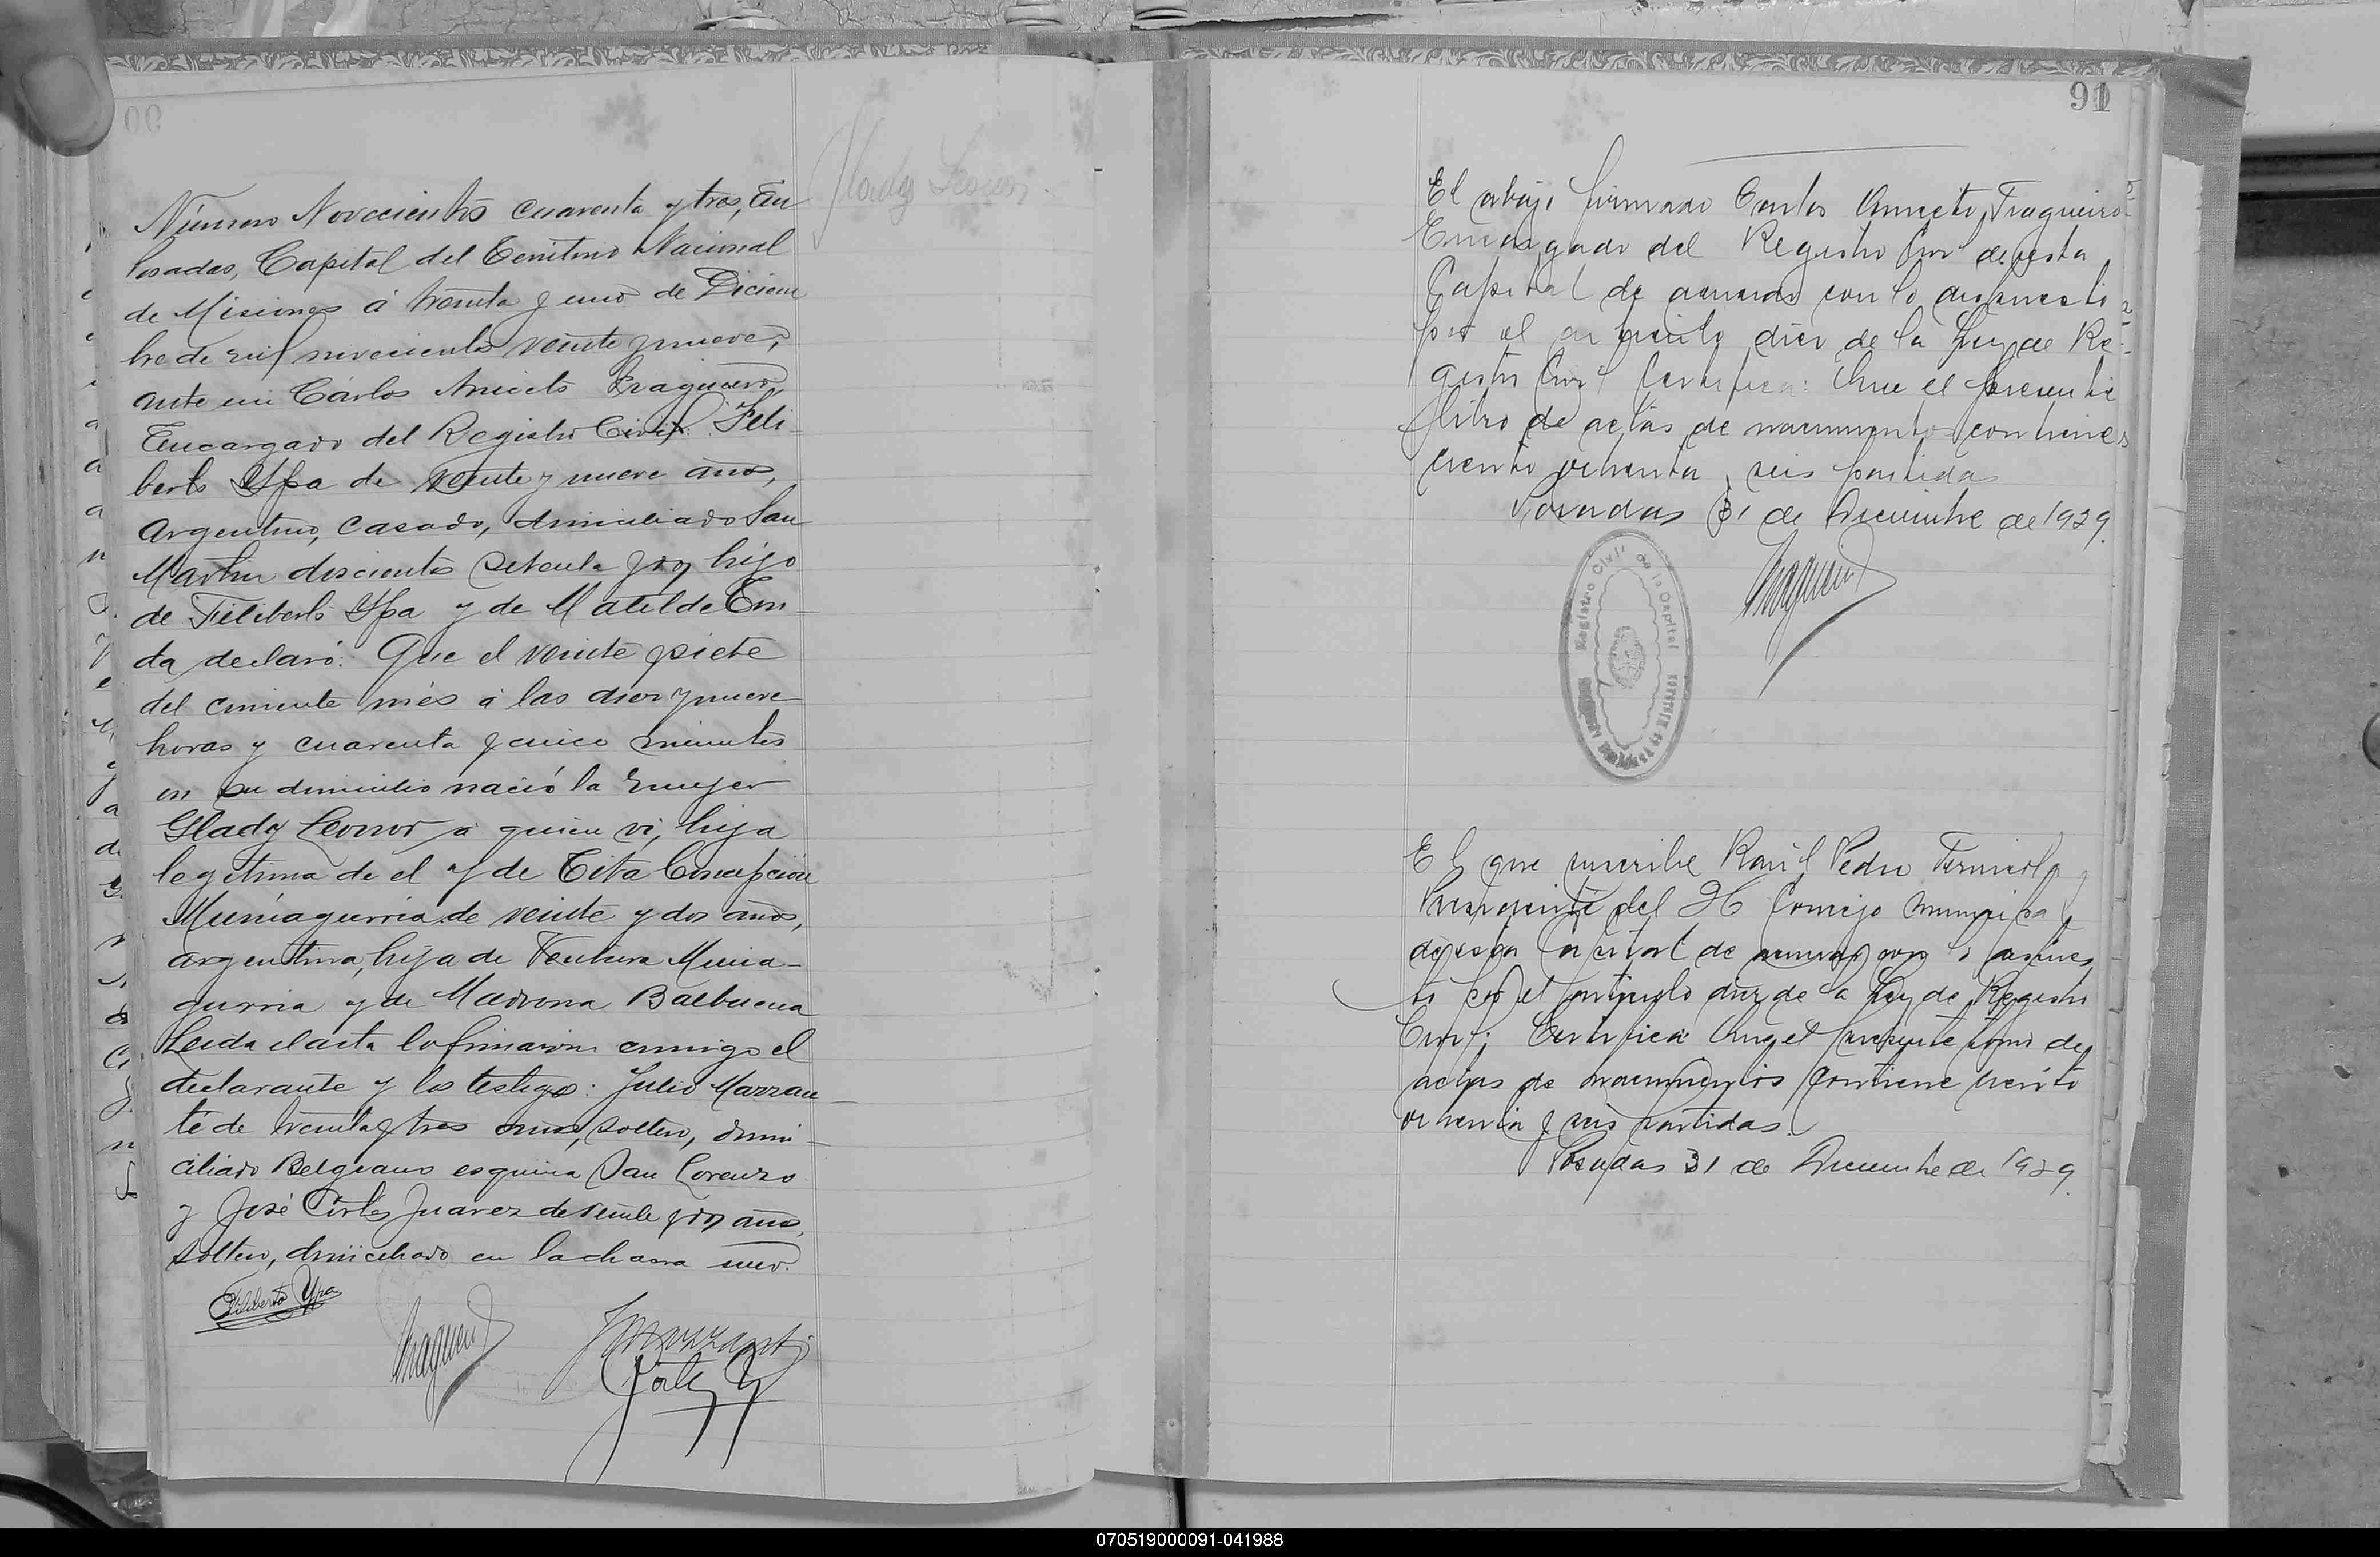 Número Novecientos cuarenta y tres, En
Posadas, Capital del Territorio Nacional
de Misiones á treinta y uno de Diciem
bre de mil novecientos veinte y nueve,
ante mi Cárlos Aniceto Fragueiro,
Encargado del Registro Civil: Fili
berto Ypa de veinte y nueve años,
Argentino, casado, domiciliado San
Martin doscientos setenta y dos hijo
de Filiberto Ypa y de Matilde
declaró: Que el veinte y siete
del corriente més á las diez y nueve
horas y cuarenta y cinco minutos
en su domicilio nació la mujer
Glady Leonor a quien vi, hija
legitima de el y de Tita Concepción
Muniagurria de veinte y dos años,
argentina, hija de Ventura Munia-
gurria y de Madrona Balbuena
Leida el acta la firmaron conmigo el
declarante y los testigos: Julio Marzan
te de treinta y tres años, soltero, domi-
ciliado Belgrano esquina San Lorenzo
y José Cirilo Juarez de veinte y dos años,
soltero, domiciliado en la chacra nueve.
Filiberto Ypa
Glady Leonor
91
El abajo firmado Carlos Aniceto Fragueiro
Encargado del Registro Civil de esta
Capital de acuerdo con lo dispuesto
por el articulo diez de la Ley de Re-
gistro Civil Certifica: Que el presente
libro de actas de nacimientos contiene
ciento ochenta y seis partidas
Posadas 31 de Diciembre de 1929.
Registro Civil de la Capital
El que suscribe Raúl Pedro
Presidente del H Concejo Municipal
de esta Capital de acuerdo con lo dispues
to por el articulo diez de la Ley de Registro
Civil; Certifica: Que el presente tomo de
actas de nacimientos contiene ciento
ochenta y seis partidas.
Posadas 31 de Diciembre de 1929.
070519000091-041988